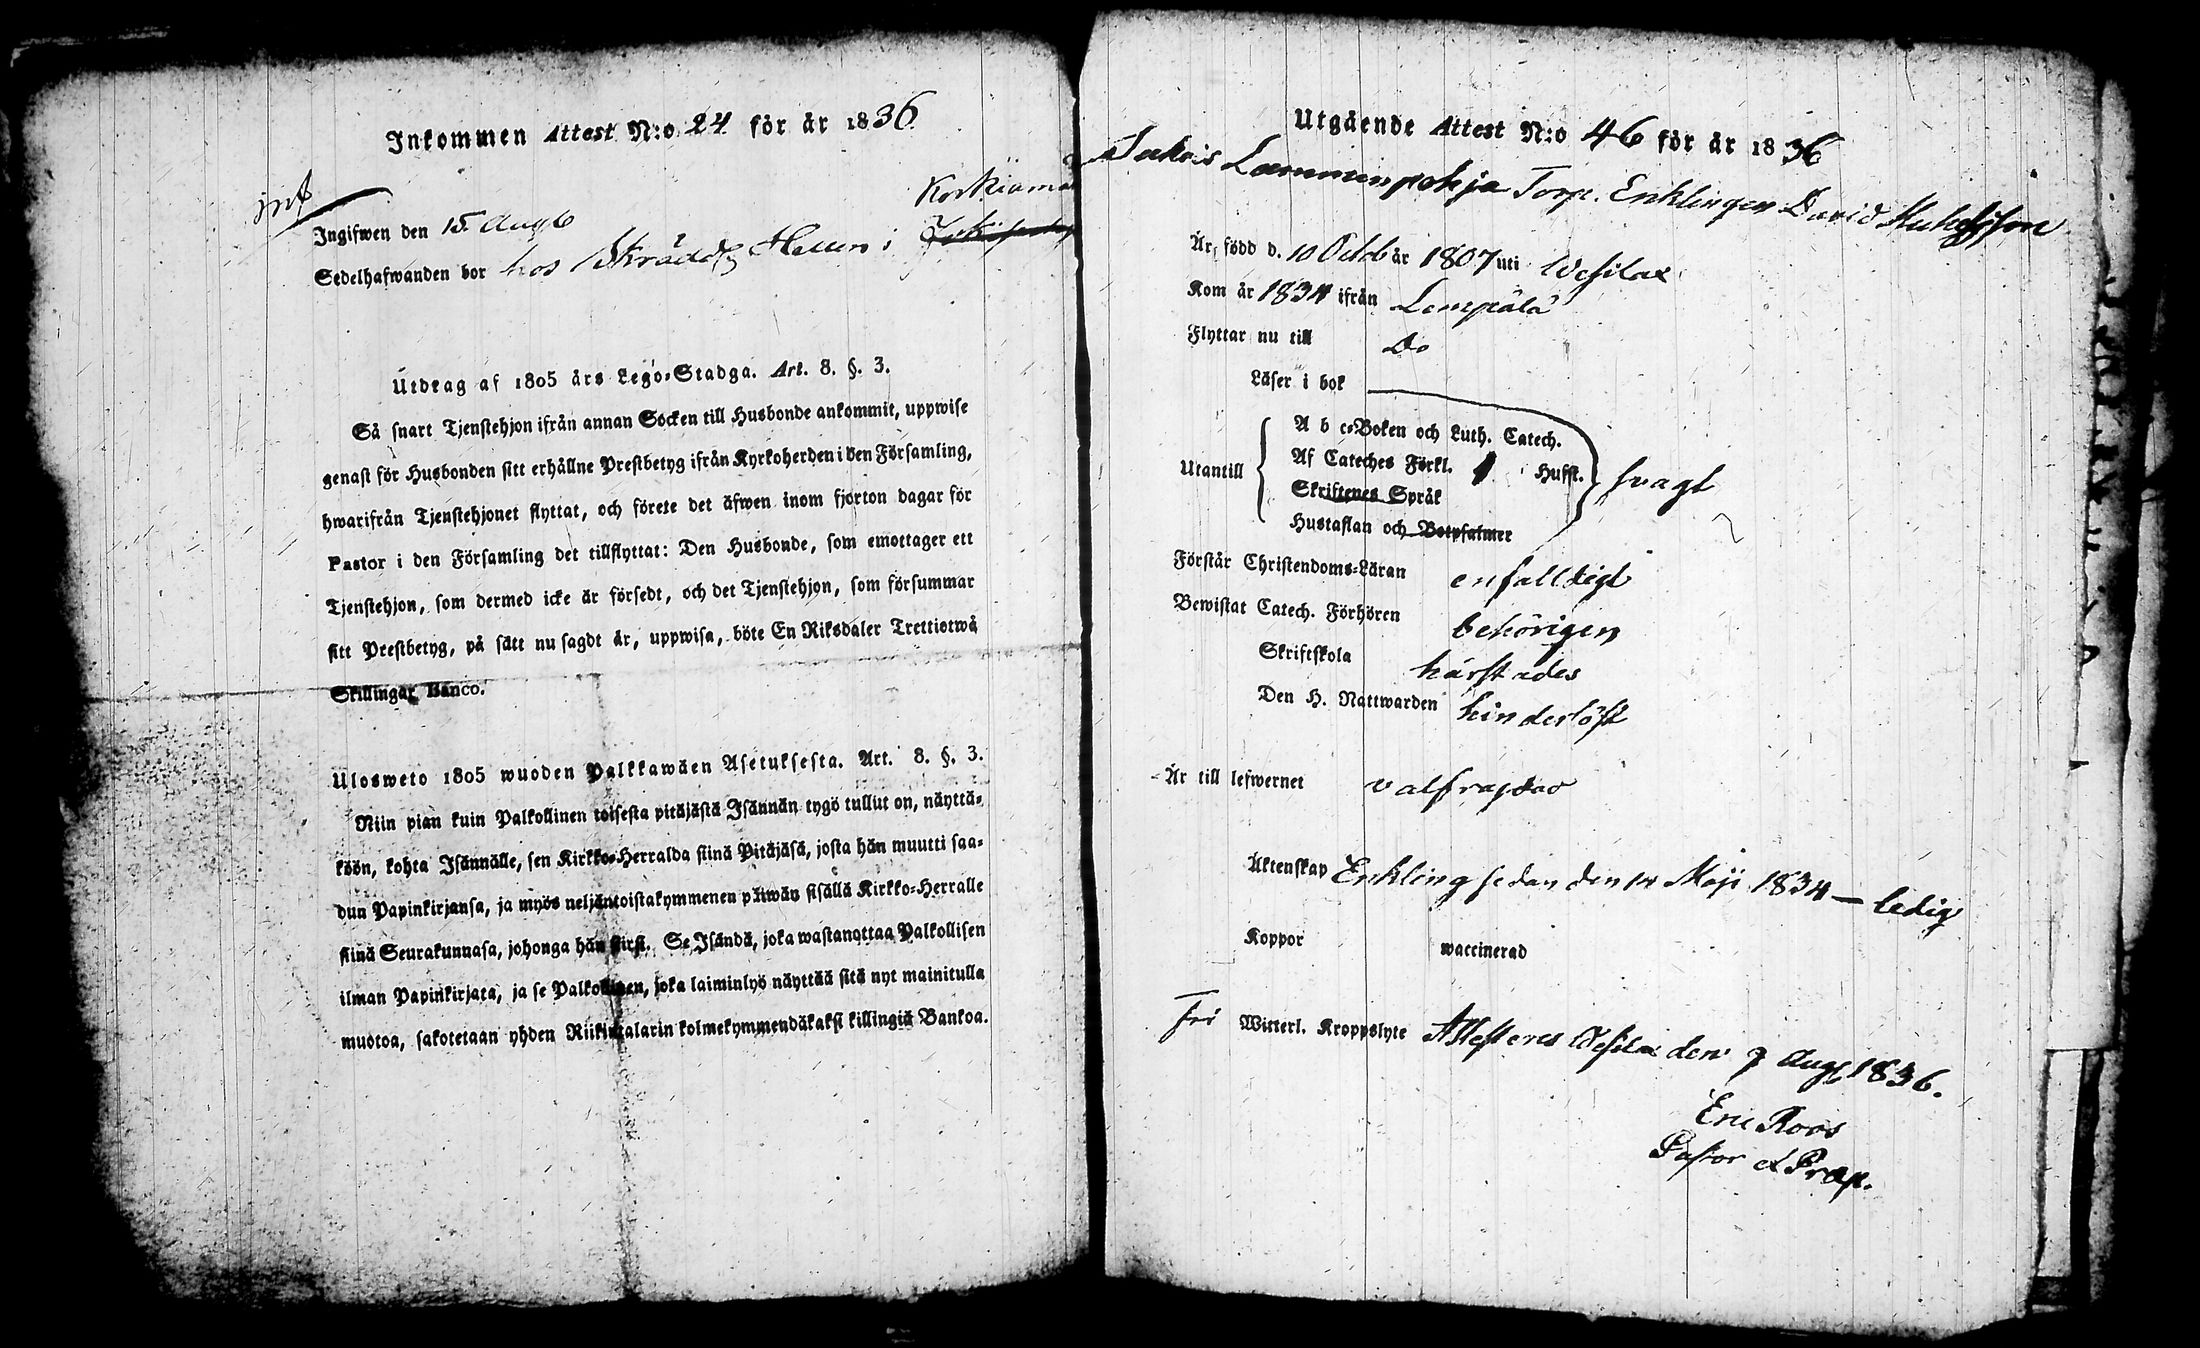 Inkommen Attest N:o 24 för år 1836
inf
Korkiama
Ingifwen den 15. Aug
Sedelhafwanden bor hos Skrädd Hellen i
Utdrag af 1805 års Lego-Stadga. Art. 8. §. 3.
Så snart Tjenstehjon ifrån annan Socken till Husbonde ankommit, uppwise
genast för Husbonden sitt erhållne Prestbetyg ifrån Kyrkoherden i den Församling,
hwarifrån Tjenstehjonet flyttat, och förete det äfwen inom fjorton dagar för
Pastor i den Församling det tillflyttat: Den Husbonde, som emottager ett
Tjenstehjon, som dermed icke är försedt, och det Tjenstehjon, som försummar
sitt Prestbetyg, på sätt nu sagdt är, uppwisa, böte En Riksdaler Trettiotwå
Skillingar Banco.
Ulosweto 1805 wuoden Palkkawäen Asetuksesta. Art. 8. §. 3.
Niin pian kuin Palkollinen toisesta pitäjästä Isännän tygö tullut on, näyttä-
köön, kohta Isännälle, sen Kirkko-Herralda siinä Pitäjäsä, josta hän muutti saa-
dun Papinkirjansa, ja myös neljäntoistakymmenen päiwän sisällä Kirkko-Herralle
siinä Seurakunnasa, johonga hän siirsi. Se Isändä, joka wastanottaa Palkollisen
ilman Papinkirjata, ja se Palkollinen, joka laiminlyö näyttää sitä nyt mainitulla
muotoa, sakotetaan yhden Riikintalarin kolmekymmendäkaksi killingiä Bankoa.
Utgående Attest N:o 46 för år 1836
Lammenpohja Torp. Enklingen David
Är, född d. 10 Octob år 1807 uti Wesilax
Kom år 1834 ifrån Lempälä
Flyttar nu till Do
Läser i bok
A b c-Boken och Luth. Catech.
Utantill Af Cateches Förkl. Husst. svagt
Skriftenes Språk
Hustaflan och Botpsalmer
Förstår Christendoms-Läran enfalldigt
Bewistat Catech. Förhören behörigen
Skriftskola härstädes
Den H. Nattwarden hinderlöst
Är till lefwernet välfrägdad
Äktenskap Enkling sedan den 14 Maji 1834 — ledig
Koppor waccinerad
Fri Witterl. Kroppslyte Attesteres Wesilax den 9 Aug 1836.
Eric Roos
Pastor et Præp.